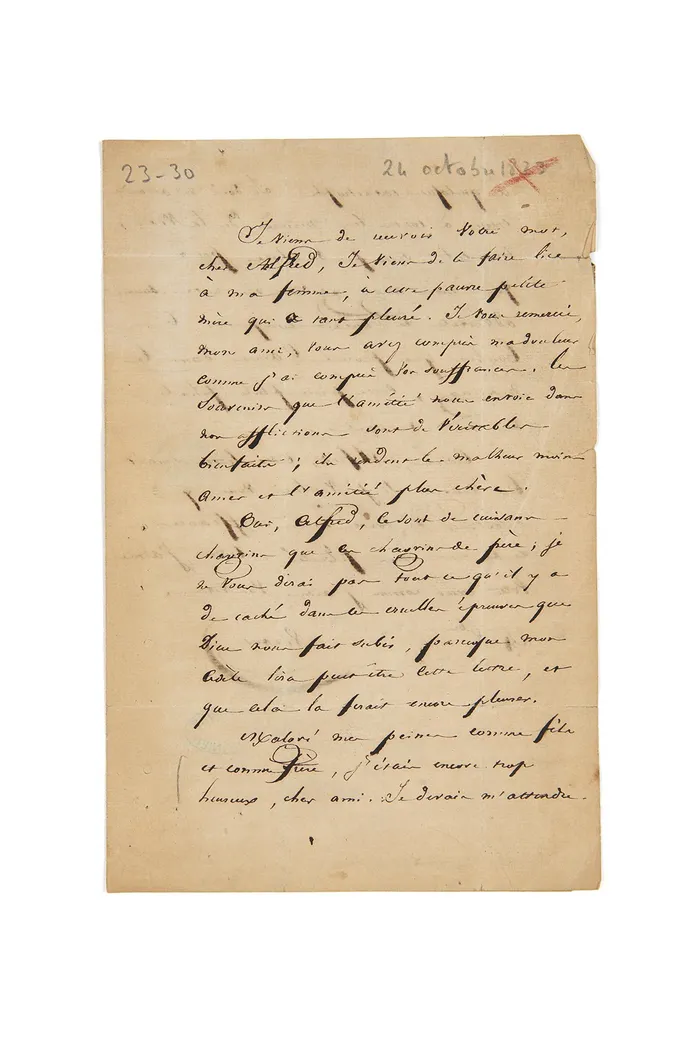 23-30
24 octobre 1823
Je viens de recevoir votre mot,
cher Alfred, Je viens de le faire lire
à ma femme, à cette pauvre petite
mère qui a tant pleuré. Je vous remercie,
mon ami, vous avez compris ma douleur
comme j'ai compris vos souffrances. les
souvenirs que l'amitié nous envoie dans
nos afflictions sont de véritables
bienfaits ; ils rendent le malheur moins
amer et l'amitié plus chère.
Oui, Alfred, ce sont de cuisans
chagrins que les chagrins de père ; je
ne vous dirai pas tout ce qu'il y a
de caché dans les cruelles épreuves que
Dieu nous fait subir, parceque mon
Adèle lira peut être cette lettre, et
que cela la ferait encore pleurer.
Malgré mes peines comme fils
et comme frère, j'étais encore trop
heureux, cher ami. Je devais m'attendre